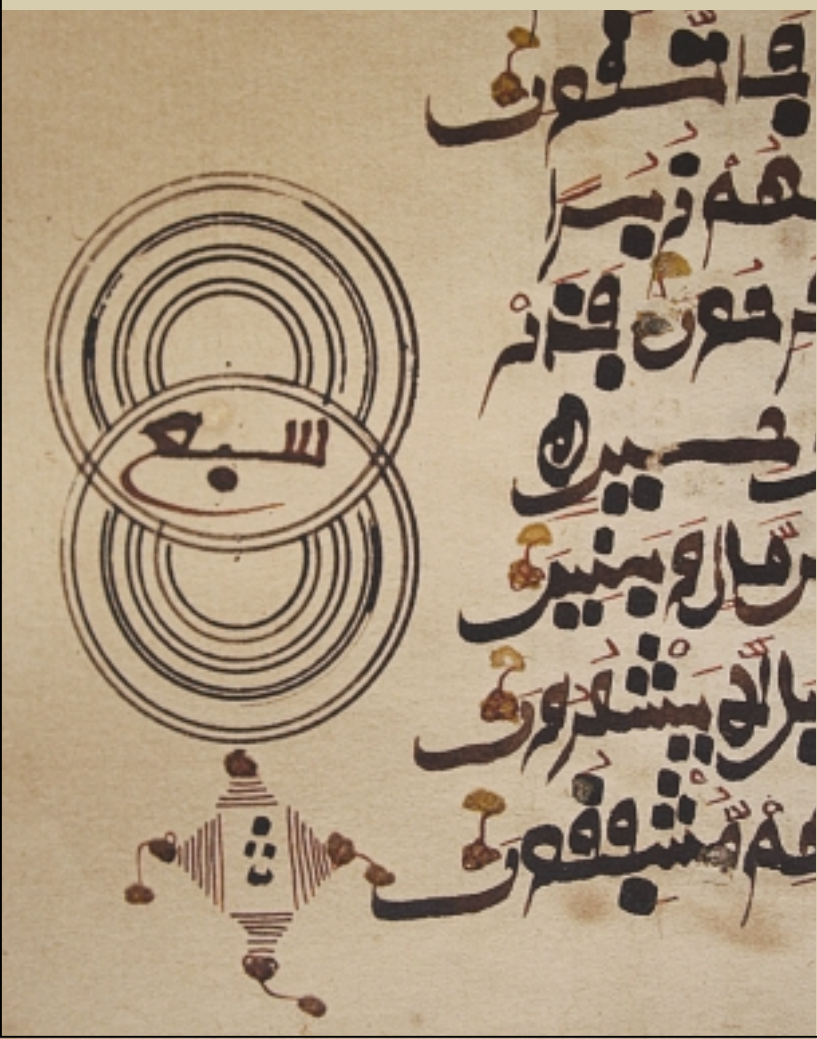 فاتقون
هم زبرا
رحون فذر
حين
مال وبنين
بل لا يشعرون
هم مشفقون
سبع